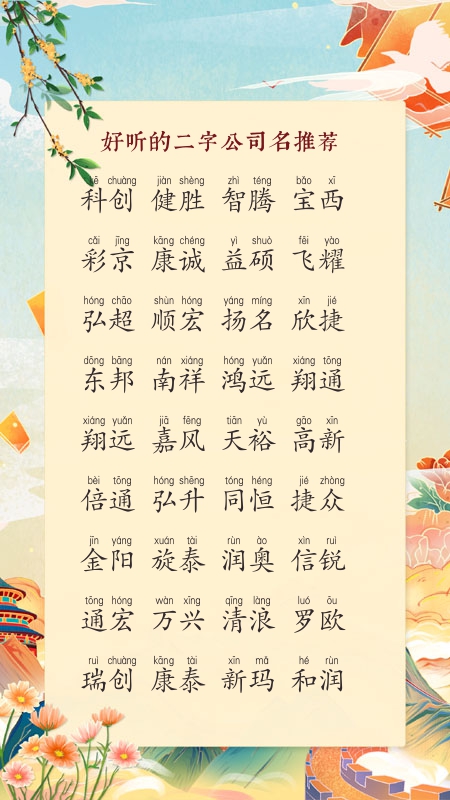 好听的二字公司名推荐
kē chuàng jiàn shèng zhì téng bǎo xī
科创 健胜 智腾 宝西
cǎi jīng kāng chéng yì shuò fēi yào
彩京 康诚 益硕 飞耀
hóng chāo shùn hóng yáng míng xīn jié
弘超 顺宏 扬名 欣捷
dōng bāng nán xiáng hóng yuǎn xiáng tōng
东邦 南祥 鸿远 翔通
xiáng yuǎn jiā fēng tiān yù gāo xīn
翔远 嘉风 天裕 高新
bèi tōng hóng shēng tóng héng jié zhòng
倍通 弘升 同恒 捷众
jīn yáng xuán tài rùn ào xìn ruì
金阳 旋泰 润奥 信锐
tōng hóng wàn xīng qīng làng luó ōu
通宏 万兴 清浪 罗欧
ruì chuàng kāng tài xīn mǎ hé rùn
瑞创 康泰 新玛 和润